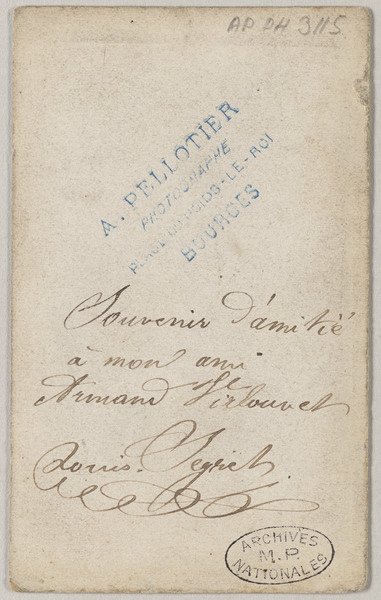 AP PH 3115
A. PELLOTIER
PHOTOGRAPHE
PLACE DU POIDS-LE-ROI
BOURGES
Souvenir d'amitié
à mon ami
Armand
Louis
ARCHIVES
M.P.
NATIONALES